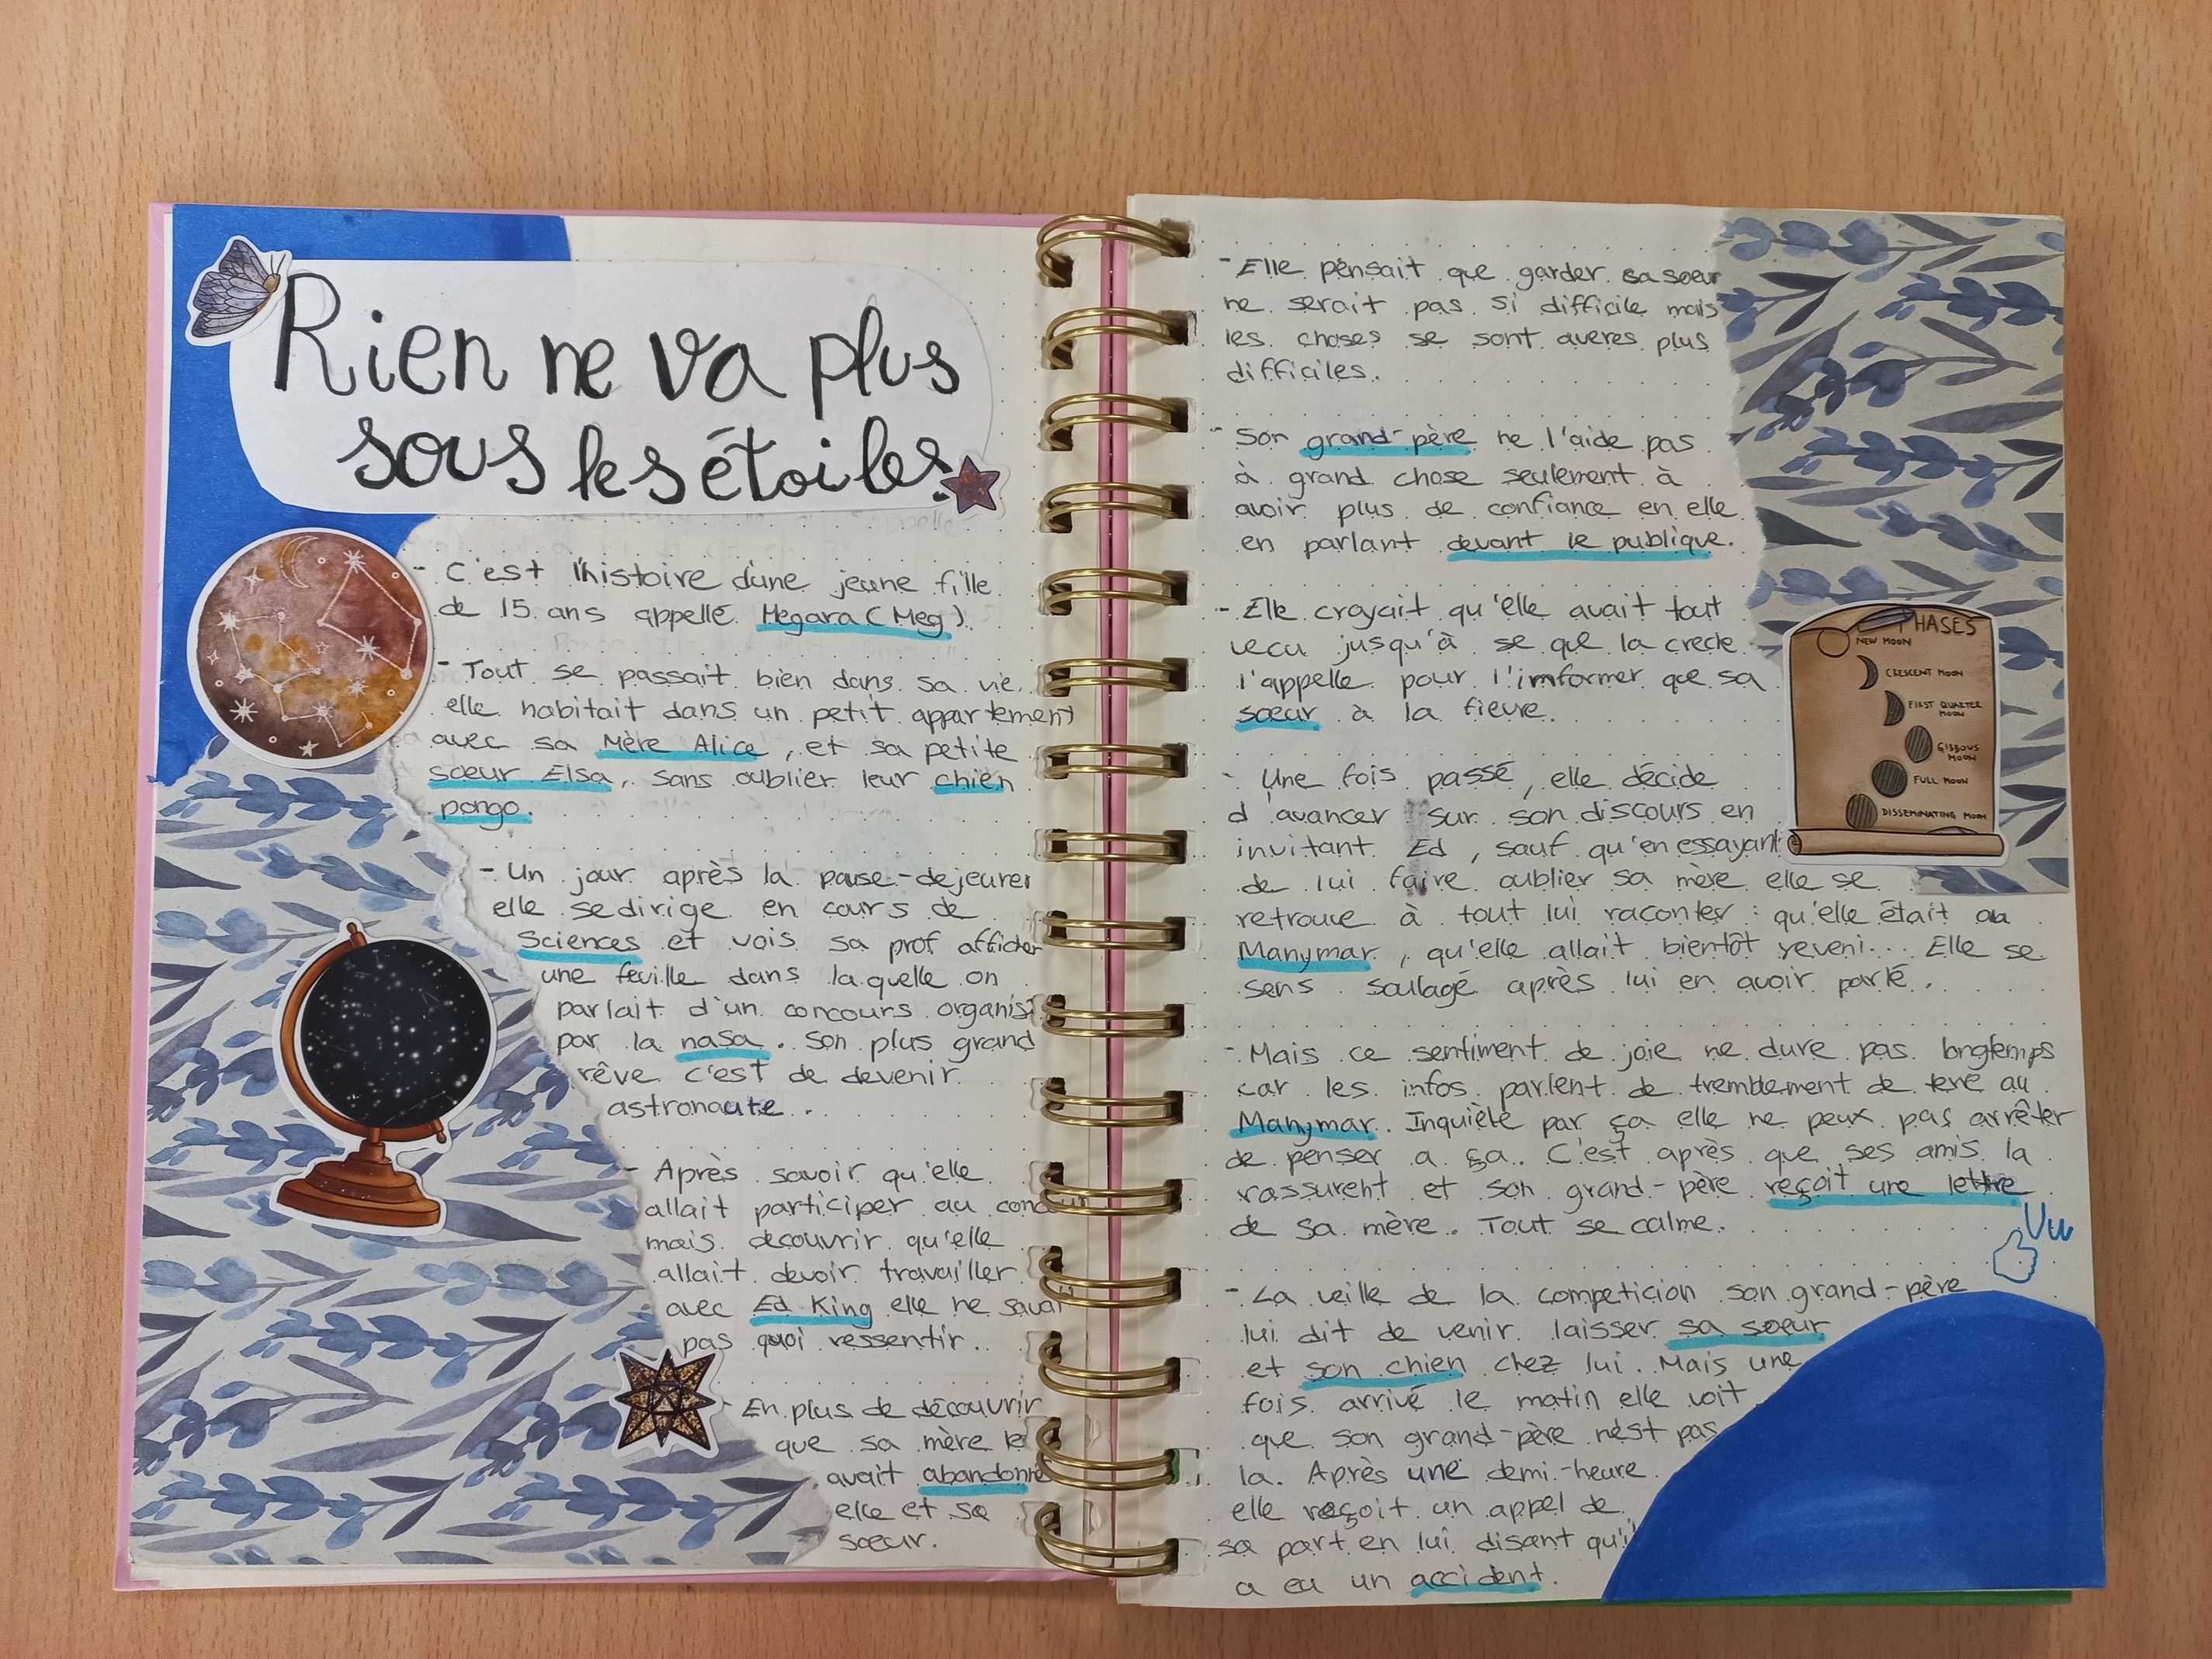 Rien ne va plus
sous les étoiles.
- C'est l'histoire d'une jeune fille
de 15 ans appellé Megara (Meg).
- Tout se passait bien dans sa vie,
elle habitait dans un petit appartement
avec sa Mère Alice, et sa petite
sœur Elsa, sans oublier leur chien
pongo.
- Un jour après la pause-dejeurer
elle se dirige en cours de
Sciences et vois sa prof afficher
une feuille dans laquelle on
parlait d'un concours organisé
par la nasa. Son plus grand
rêve c'est de devenir
astronaute.
- Après savoir qu'elle
allait participer au
mais découvrir qu'elle
allait devoir travailler
avec Ed King elle ne savait
pas quoi ressentir.
- En plus de découvrir
que sa mère
avait abandonné
elle et sa
sœur.
- Elle pensait que garder sa sœur
ne serait pas si difficile mais
les choses se sont averes plus
difficiles.
- Son grand-père ne l'aide pas
à grand chose seulement à
avoir plus de confiance en elle
en parlant devant le publique.
- Elle croyait qu'elle avait tout
vecu jusqu'à se que la crecle
l'appelle pour l'imformer que sa
sœur à la fievre.
- Une fois passé, elle décide
d'avancer sur son discours en
invitant Ed, sauf qu'en essayant
de lui faire oublier sa mère elle se
retrouve à tout lui raconter : qu'elle était au
Manymar, qu'elle allait bientôt reveni... Elle se
sens soulagé après lui en avoir parlé.
- Mais ce sentiment de joie ne dure pas longtemps
car les infos parlent de tremblement de terre au
Manymar. Inquièté par ça elle ne peux pas arrêter
de penser a ça. C'est après que ses amis la
rassurent et son grand-père reçoit une lettre
de sa mère. Tout se calme.
Vu
- La veille de la competicion son grand-père
lui dit de venir laisser sa sœur
et son chien chez lui. Mais une
fois arrivé le matin elle voit
que son grand-père n'est pas
la. Après une demi-heure
elle reçoit un appel de
sa part en lui disant qu'il
a eu un accident.
PHASES
NEW MOON
CRESCENT MOON
FIRST QUARTER
MOON
GIBBOUS
MOON
FULL MOON
DISSEMINATING MOON